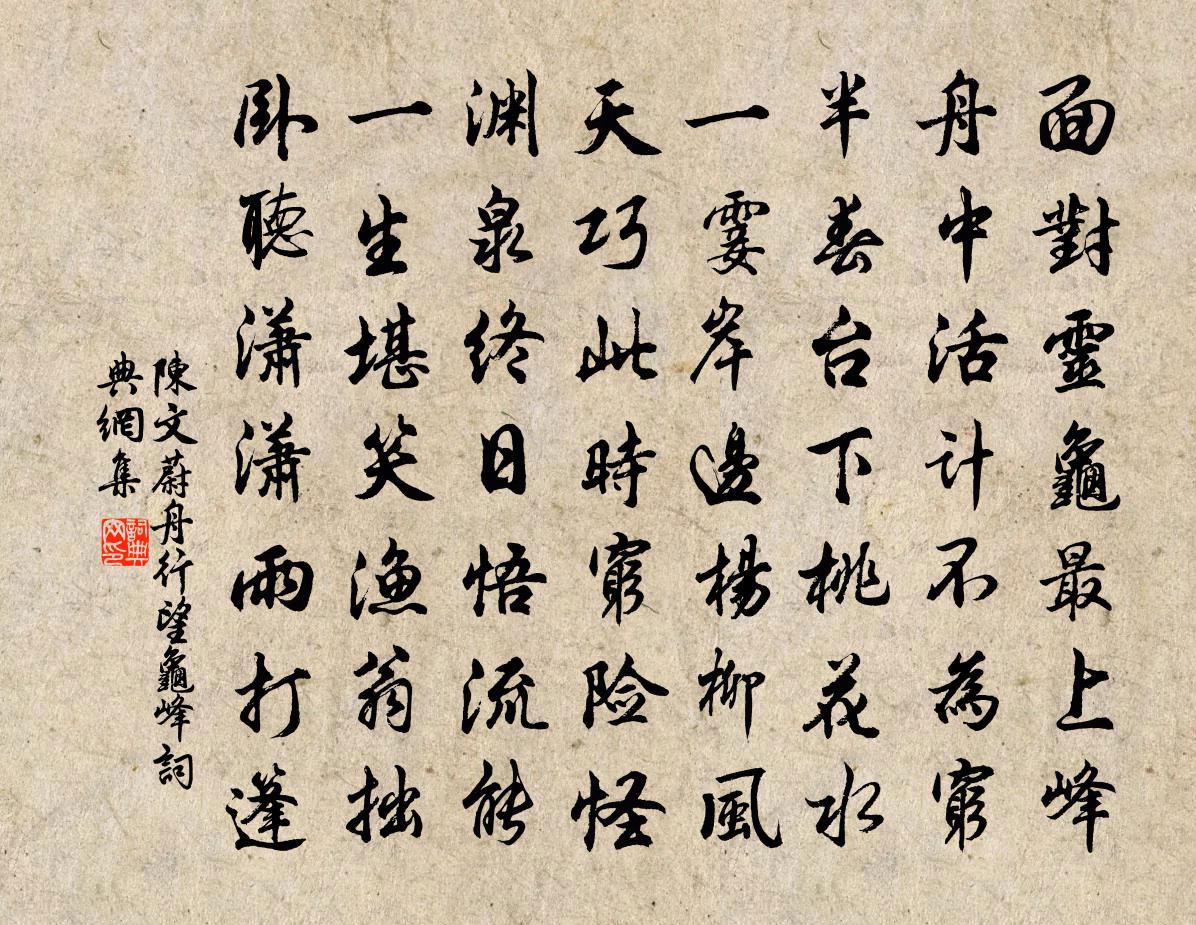 面對靈龜最上峰
舟中活計不為窮
半春台下桃花水
一霎岸邊楊柳風
天巧此時窮险怪
渊泉終日悟流能
一生堪笑漁翁拙
卧聽潇潇雨打篷
陳文蔚舟行望龜峰詞
典網集
詞典
网印